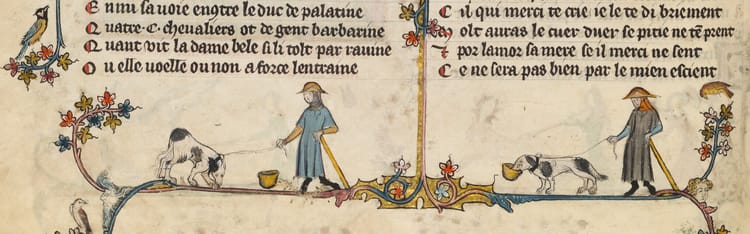 E nmi sa uoie enqtre le duc de palatine
Q uatre .c. cheualiers ot de gent barbarine
Q uant uit la dame bele si li tolt par rauine
O u elle uoelle ou non a force lentraine
C il qui merci te crie ie le te di briement
M olt auras le cuer duer se pitie ne te prent
⁊ por lamor sa mere se il merci ne sent
C e ne sera pas bien par le mien escient